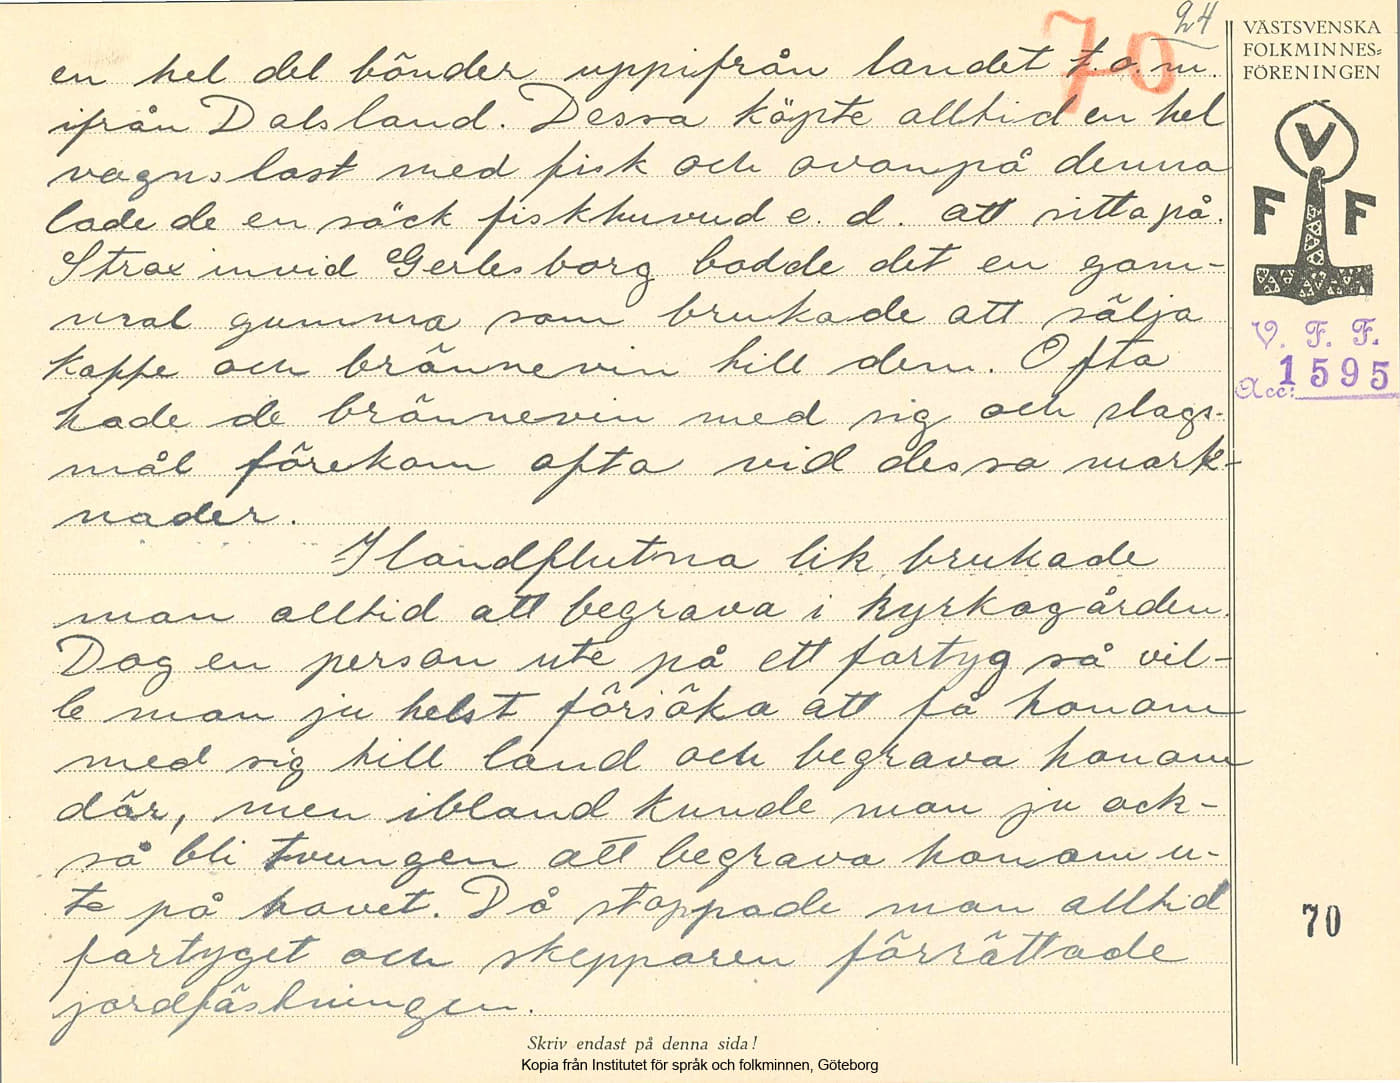 24
70
en hel del bönder uppifrån landet t.o.m.
ifrån Dalsland. Dessa köpte alltid en hel
vagnslast med fisk och ovanpå denna
lade de en säck fiskhuvud e. d. att sitta på.
Strax invid Gerlesborg bodde det en gam-
mal gumma som brukade att sälja
kaffe och brännevin till dem. Ofta
hade de brännevin med sig och slags-
mål förekom ofta vid dessa mark-
nader.
Ilandflutna lik brukade
man alltid att begrava i kyrkogården.
Dog en person ute på ett fartyg så vil-
le man ju helst försöka att få honom
med sig till land och begrava honom
där, men ibland kunde man ju ock-
så bli tvungen att begrava honom u-
te på havet. Då stoppade man alltid
fartyget och skepparen förrättade
jordfästningen.
Skriv endast på denna sida!
Kopia från Institutet för språk och folkminnen, Göteborg
VÄSTSVENSKA
FOLKMINNES-
FÖRENINGEN
V
F F
V. F. F.
Acc: 1595
70